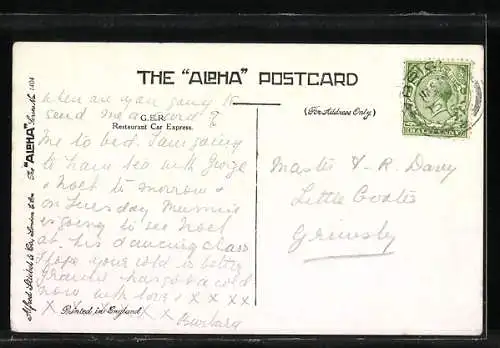 THE "ALPHA" POSTCARD
when are you going to
send me a card?
G.E.R.
Restaurant Car Express.
me to bed. I am going
to have tea with George
& Noel to morrow &
on Tuesday Mummie
is going to see Noel
at his dancing class
I hope your cold is better
has got a cold
now with love & x x x x
x x x x x x
Barbara
Printed in England
(For Address Only)
Master F. R. Davy
Little Coates
Grimsby
The "ALPHA" Series No. 1404
Alfred Stiebel & Co., London E.C.
HALFPENNY